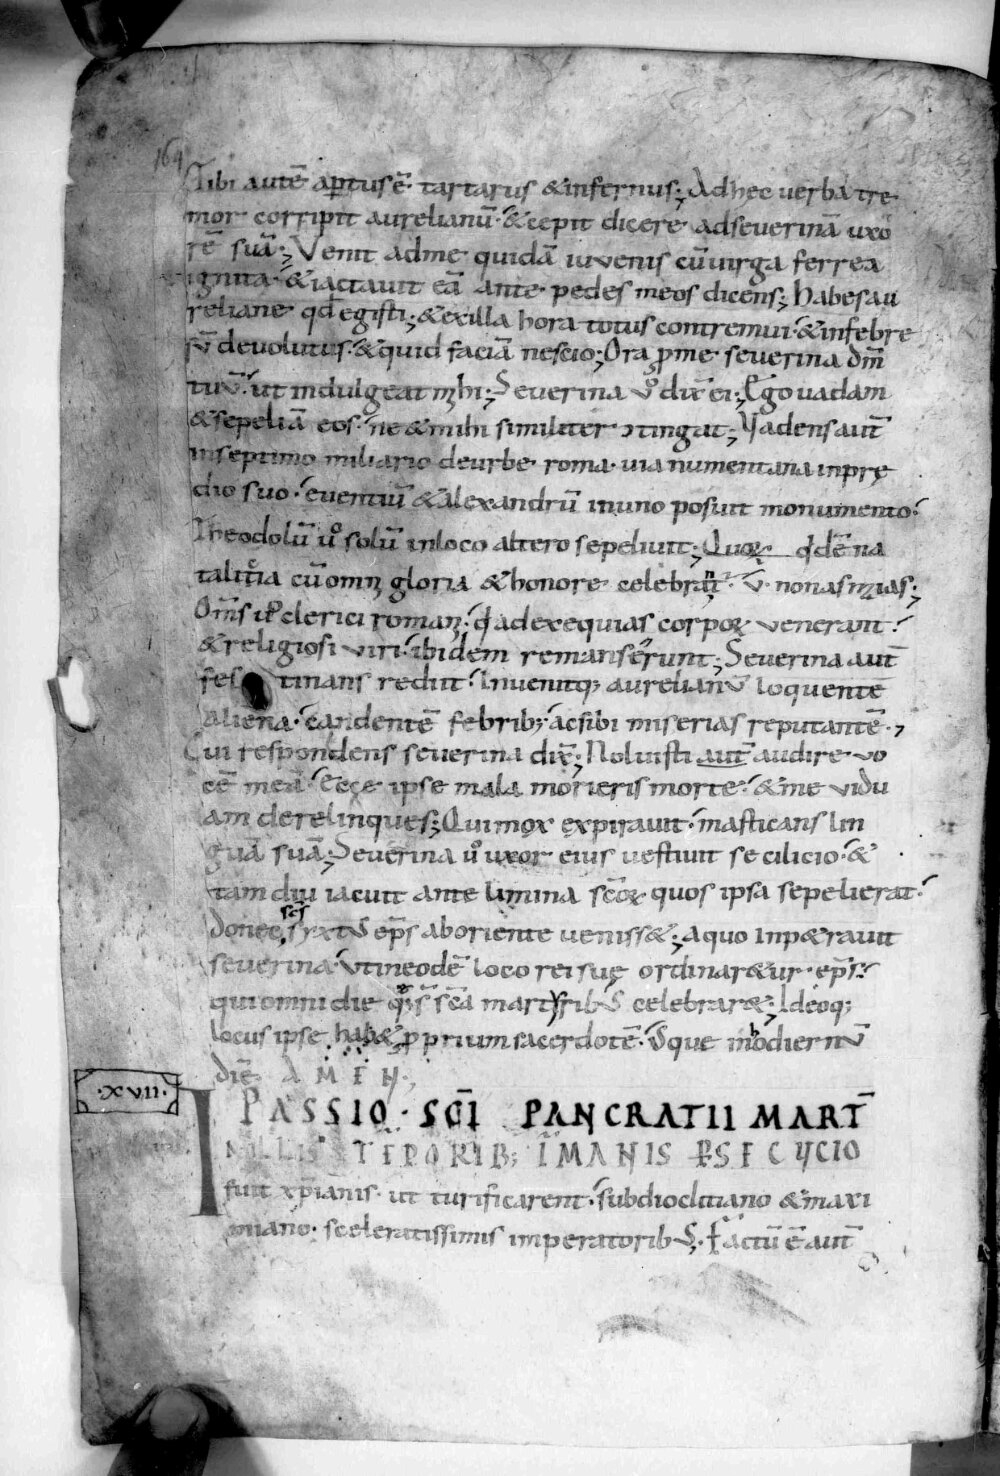 164
Tibi autē aptus ē tartarus & infernus; Ad hęc uerba tre
mor corripit aurelianū. & cepit dicere ad seuerinā uxo
rē suā; Venit ad me quidā iuvenis cū uirga ferrea
ignita. & iactauit eā ante pedes meos dicens; habes au
reliane qd egisti; & ex illa hora totus contremui. & in febre
sū devolutus. & quid faciā nescio; Ora pro me severina dn̄m
tuū. ut indulgeat mihi; Severina ūo dix̄ ei; Ego uadam
& sepeliā eos. ne & mihi similiter ɔtingat; Vadens aut̄
in septimo miliario de urbe roma. uia numentana in prę
dio suo. eventiū & alexandrū in uno posuit monumento.
Theodolū ūo solū in loco altero sepeliuit; Quoꝝ qdē na
talitia cū omni gloria & honore celebrant̄. V. nonas maias;
Om̄s clerici romani. qd ad exequias corpoꝝ venerant.
& religiosi viri. ibidem remanserunt; Severina aut̄
fes tinans rediit. Inuenitq; aurelianū loquentē
aliena. candentē febrib; ac sibi miserias reputantē.
Cui respondens seuerina dix̄; Noluisti aut̄ audire vo
cē meā. Ecce ipse mala morieris morte. & me vidu
am derelinques; Qui mox expirauit. masticans lin
guā suā; Severina ūo uxor eius uestiuit se cilicio. &
tam diu iacuit ante limina sc̄oꝝ quos ipsa sepelierat.
donec sc̄s syxtus ep̄s ab oriente venisse&; a quo inp&rauit
severina. ut in eodē loco rei suę ordinar&ur. ep̄s.
qui omni die sc̄a martyribus celebrar&; Ideoq;
locus ipse hab& pprium sacerdotē. usque in hodiernū
diē. AMEN;
.XVII.
PASSIO. SC̄I PANCRATII MART̄
IN ILLIS TĒPORIB; IMANIS PSECVCIO
fuit xp̄ianis. ut turificarent. sub diocletiano & maxi
miano. sceleratissimis imperatoribus. Factū ē aut̄